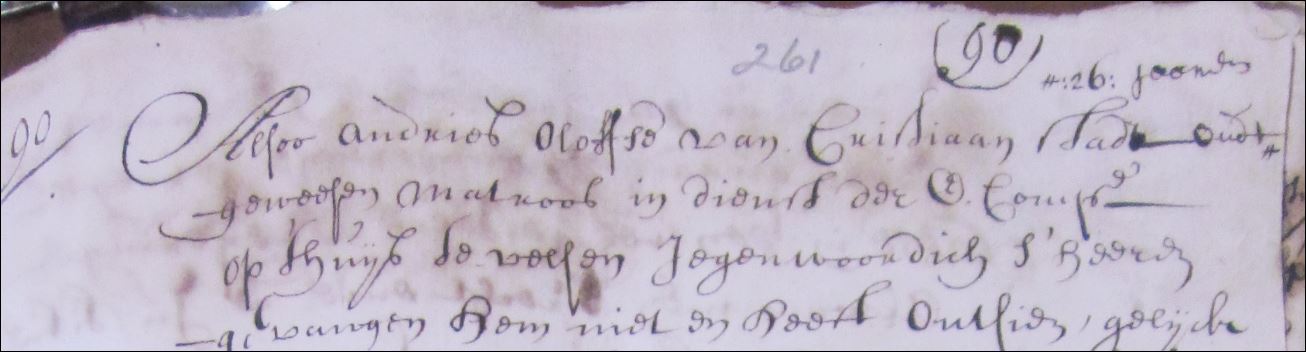 261
(90)
#: 26: jaeren
90 Alsoo Andries Oloffse van Cristiaan stadt oudt #
geweesen Matroos in dienst der E. Comps.e
op 't huijs te velsen Jegenwoordich s'heeren
gevangen hem niet en heeft ontsien, gelijck